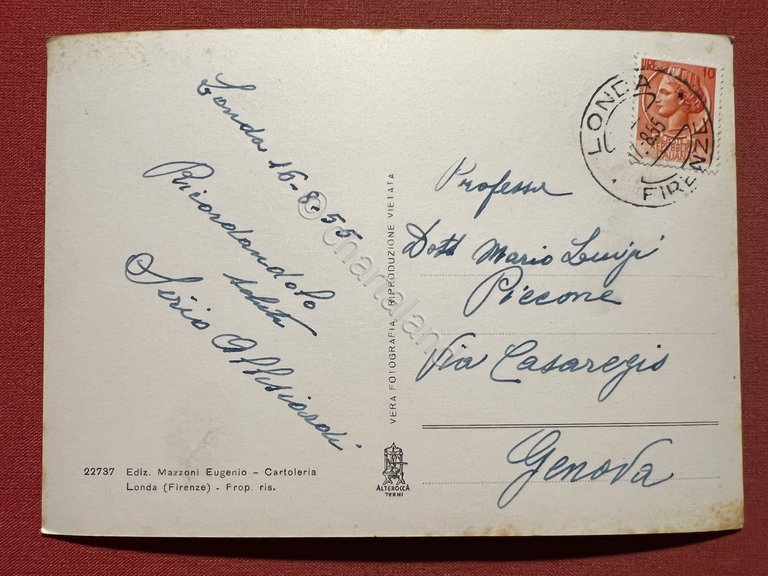 Londa 16-8-55
Ricordandolo
saluta
Sirio
22737 Ediz. Mazzoni Eugenio - Cartoleria
Londa (Firenze) - Prop. ris.
VERA FOTOGRAFIA - RIPRODUZIONE VIETATA
ALTEROCCA
TERNI
© chartaland
10
LONDA
FIRENZE
Dott Mario Luigi
Piccone
Via Casaregis
Genova